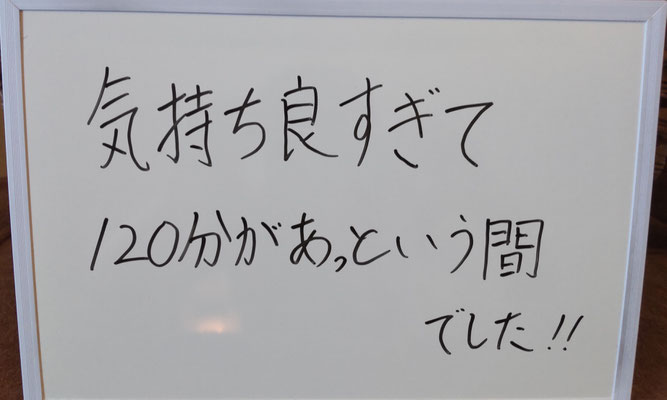 気持ち良すぎて
120分があっという間
でした!!